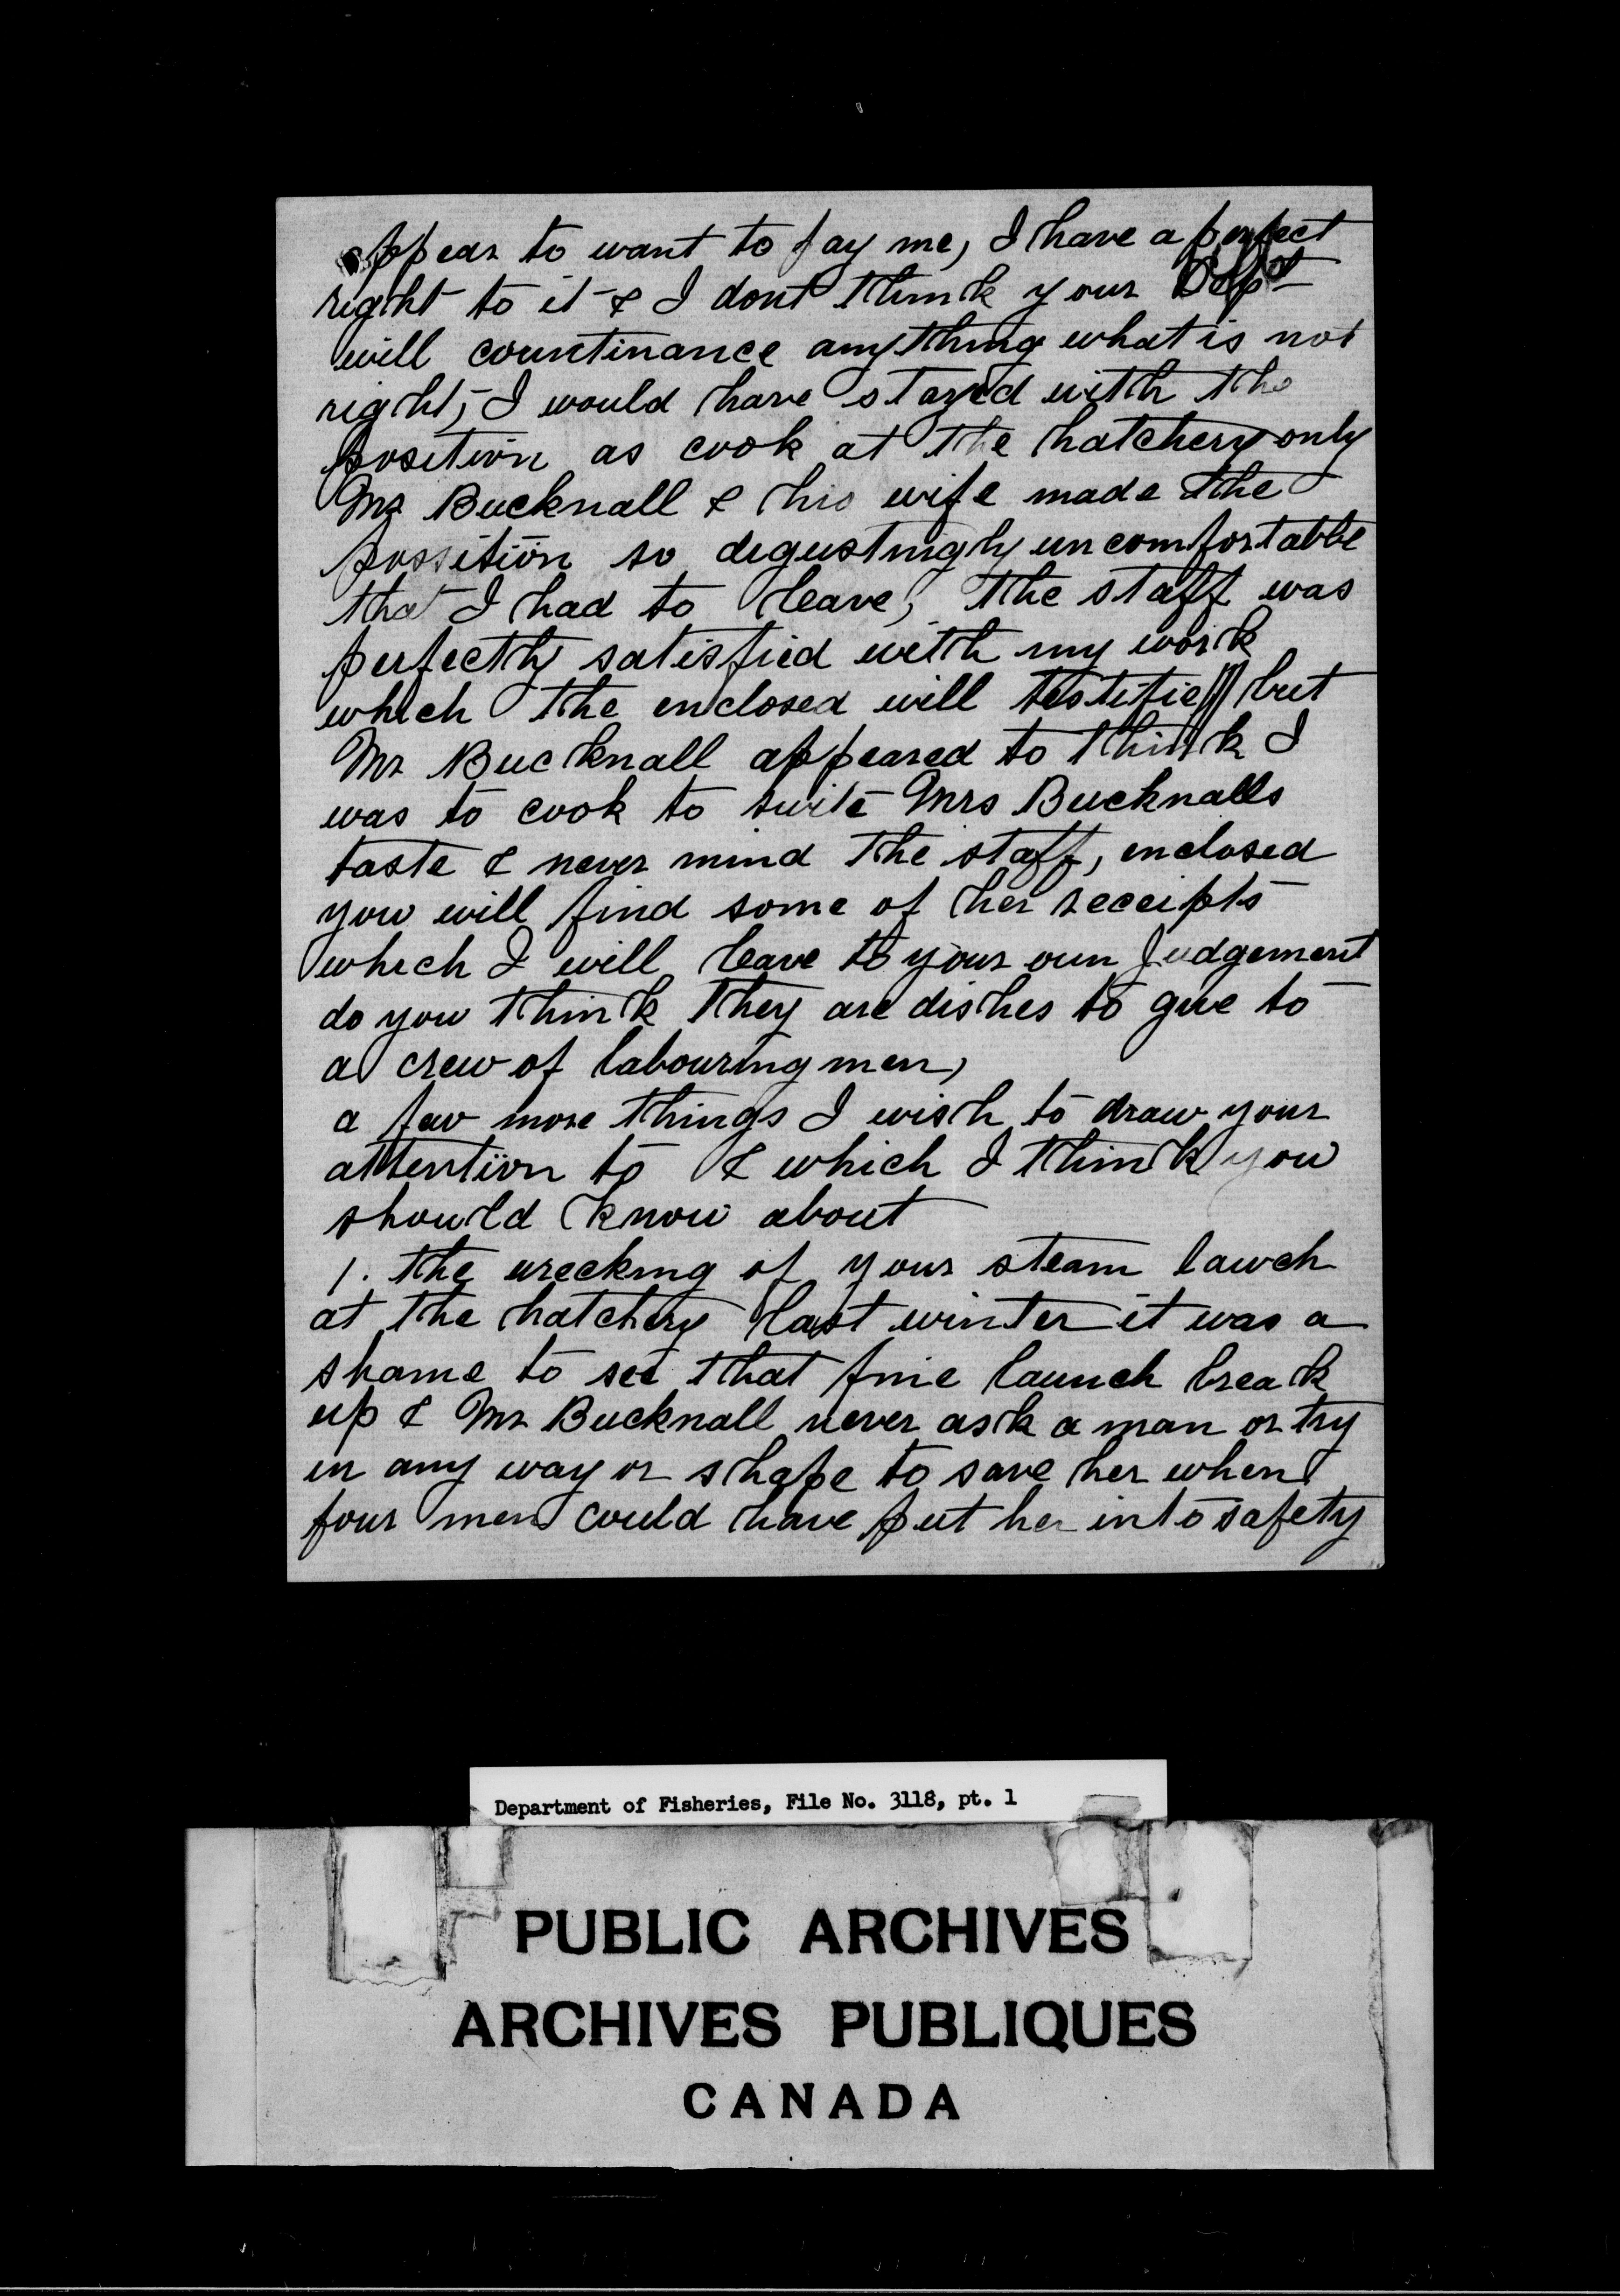 appear to want to pay me, I have a perfect
right to it & I dont think your Dept
will countinance anything what is not
right, I would have stayed with the
position as cook at the hatchery only
Mr Bucknall & his wife made the
possition so degustingly uncomfortable
that I had to leave, the staff was
perfectly satisfied with my work
which the enclosed will testifie but
Mr Bucknall appeared to think I
was to cook to suite Mrs Bucknalls
taste & never mind the staff, enclosed
you will find some of her receipts
which I will leave to your own Judgement
do you think they are dishes to give to
a crew of labouring men,
a few more things I wish to draw your
attention to & which I think you
should know about
1. the wrecking of your steam lawch
at the hatchery last winter it was a
shame to see that fine launch break
up & Mr Bucknall never ask a man or try
in any way or shape to save her when
four men could have put her into safety
Department of Fisheries, File No. 3118, pt. 1
PUBLIC ARCHIVES
ARCHIVES PUBLIQUES
CANADA